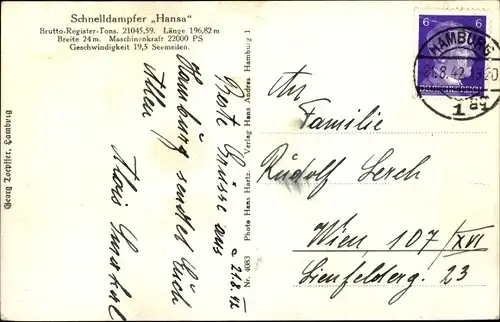 Schnelldampfer „Hansa"
Brutto-Register-Tons. 21045,59. Länge 196,82 m
Breite 24 m. Maschinenkraft 22000 PS
Geschwindigkeit 19,5 Seemeilen.
6 6
HAMBURG
1
DEUTSCHES REICH
An
Familie
Rudolf Lerch
Wien, 107/XVI
Lienfelderg. 23
21.8.42
Beste Grüsse aus
Hamburg sendet Euch
Allen
Alois
Nr. 4083 Photo Hans Hartz. Verlag Hans Andres Hamburg 1
Georg Hamburg